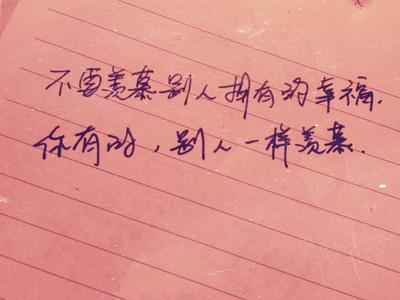 不要羡慕别人拥有的幸福.
你有的，别人一样羡慕.